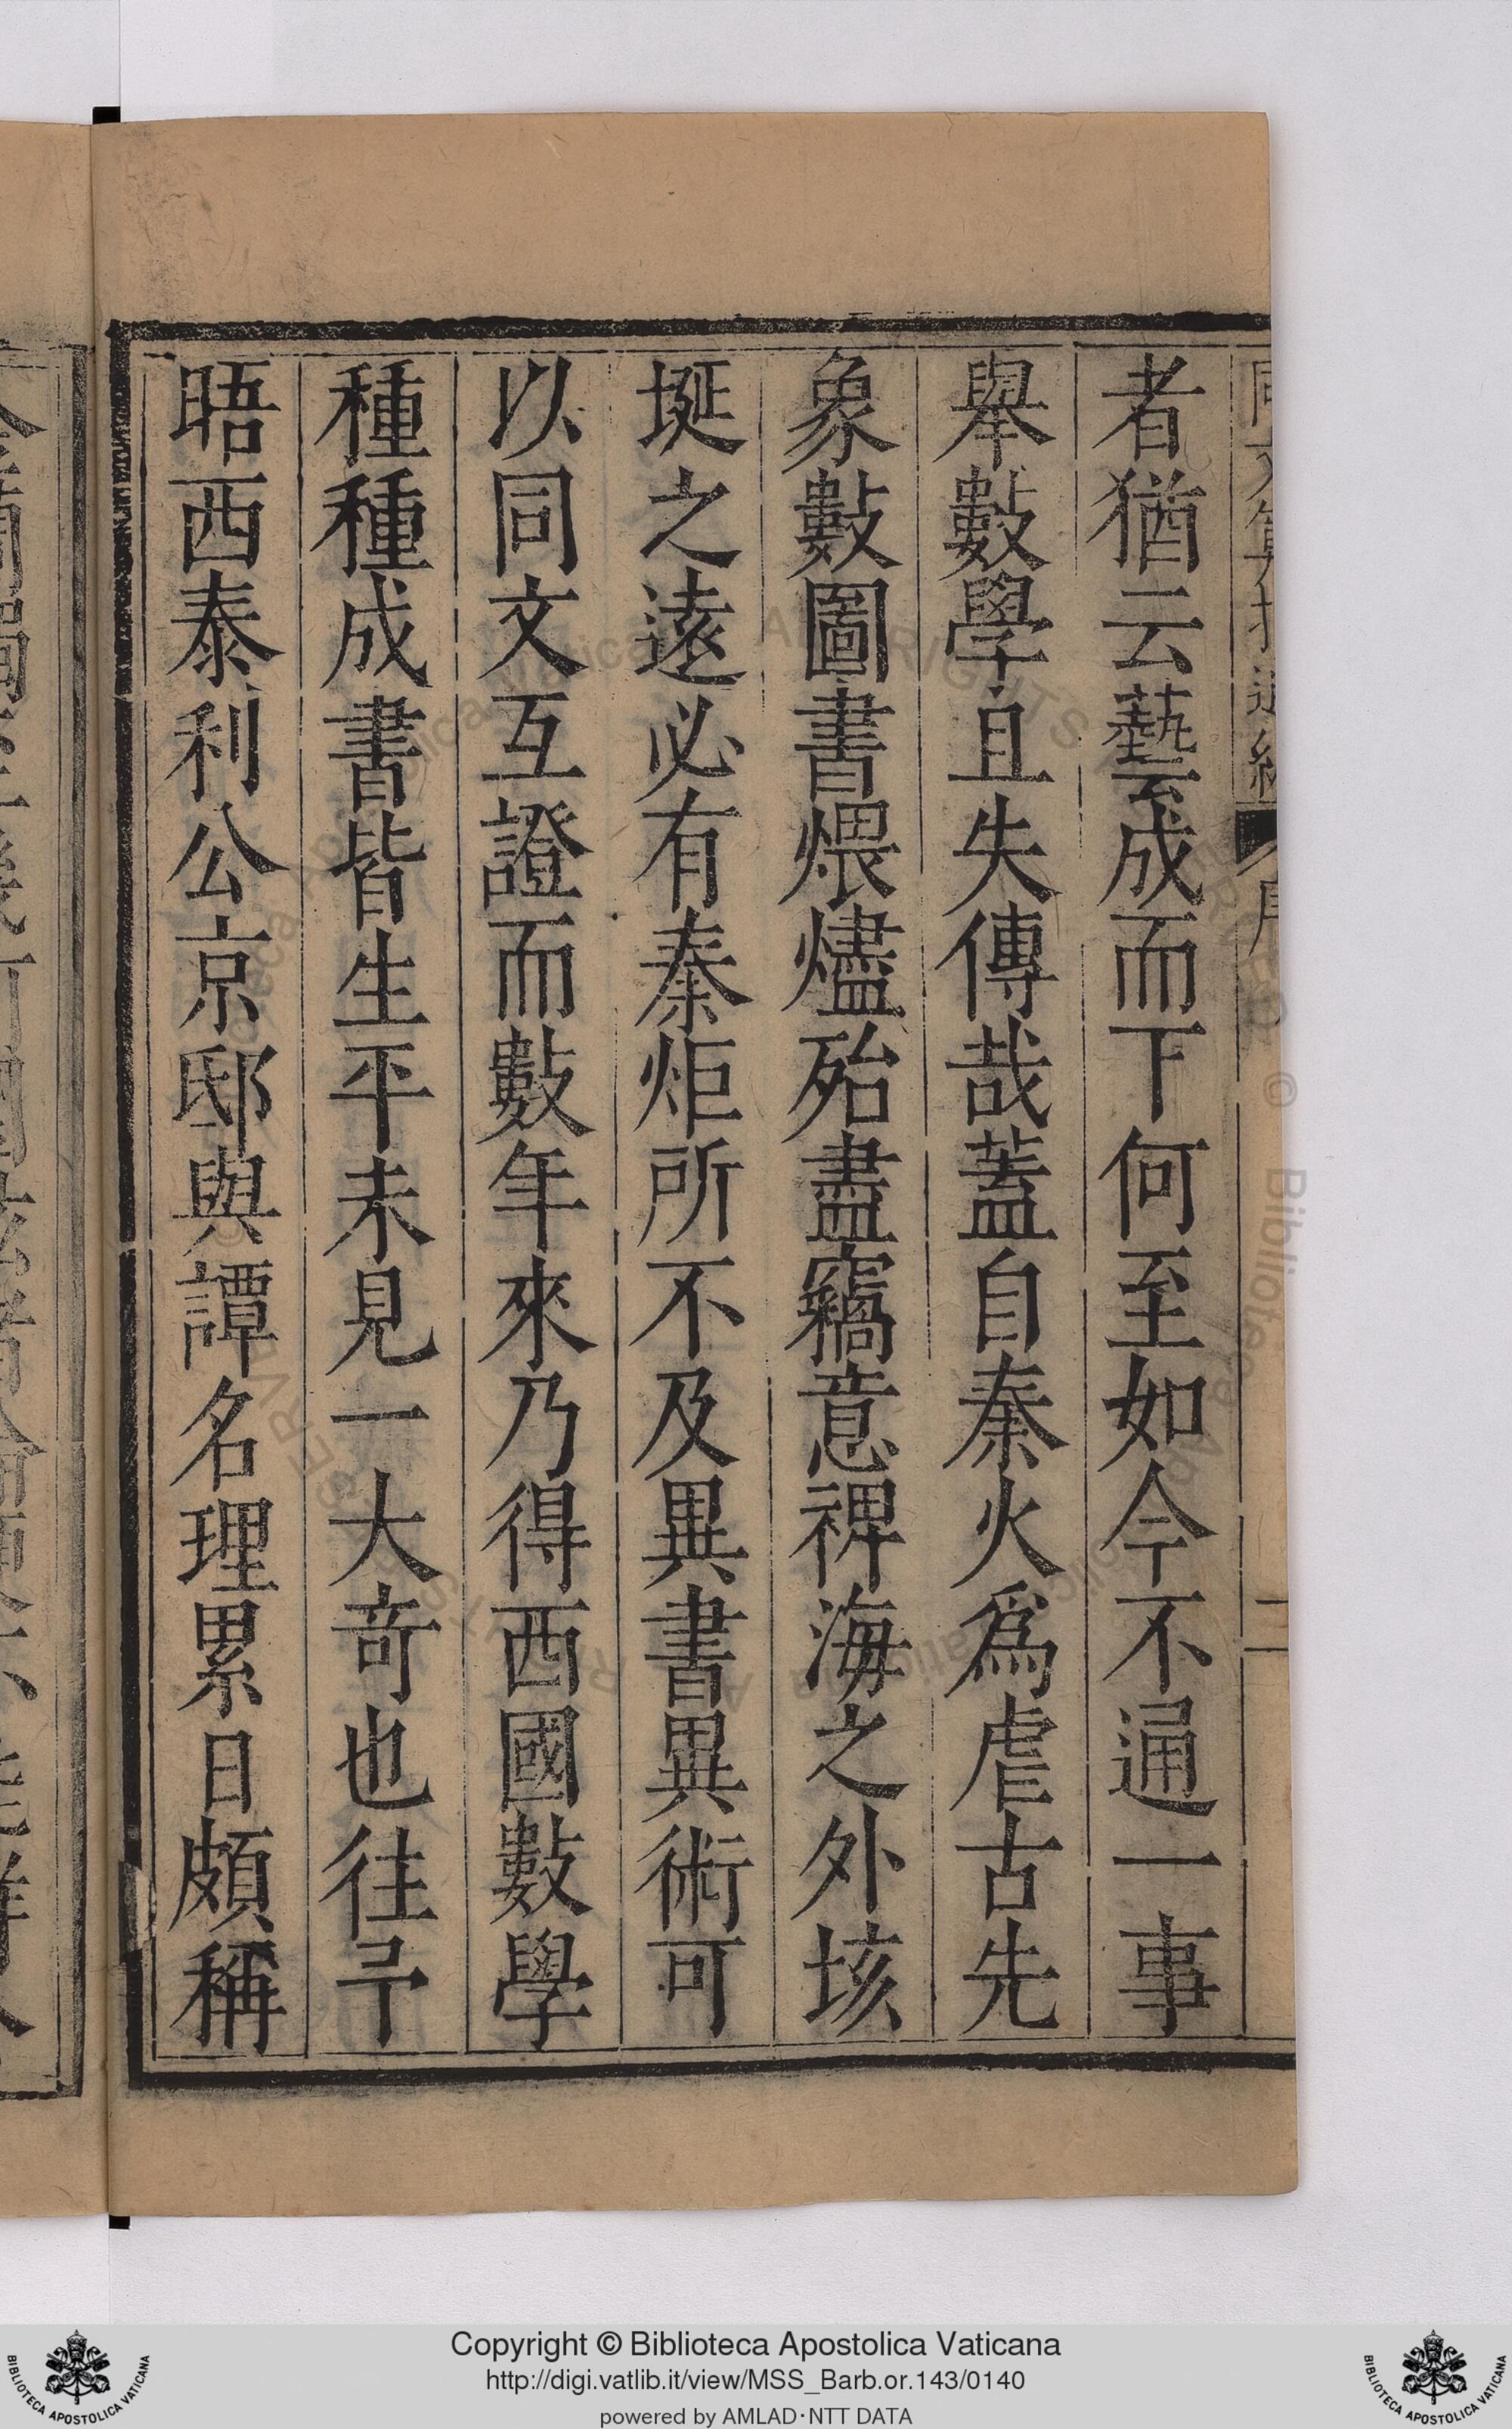 者猶云藝成而下何至如今不通一事
舉數學且失傳哉蓋自秦火爲虐古先
象數圖書煨燼殆盡竊意裨海之外垓
埏之遠必有秦炬所不及異書異術可
以同文互證而數年來乃得西國數學
種種成書皆生平未見一大竒也往予
晤西泰利公京邸與譚名理累日頗稱
Copyright © Biblioteca Apostolica Vaticana
http://digi.vatlib.it/view/MSS_Barb.or.143/0140
powered by AMLAD·NTT DATA
BIBLIOTECA APOSTOLICA VATICANA
BIBLIOTECA APOSTOLICA VATICANA